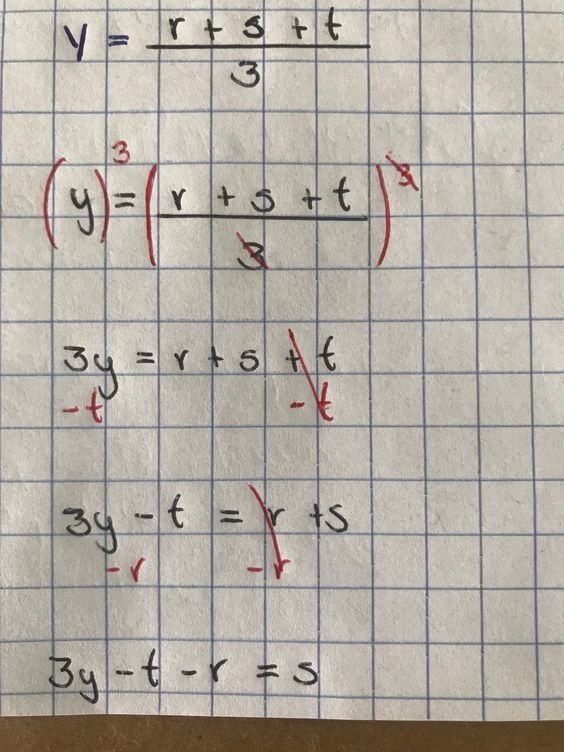 y = r + s + t / 3
(y)³ = (r + s + t / 3)³
3y = r + s + t
-t - t
3y - t = r + s
-r - r
3y - t - r = s